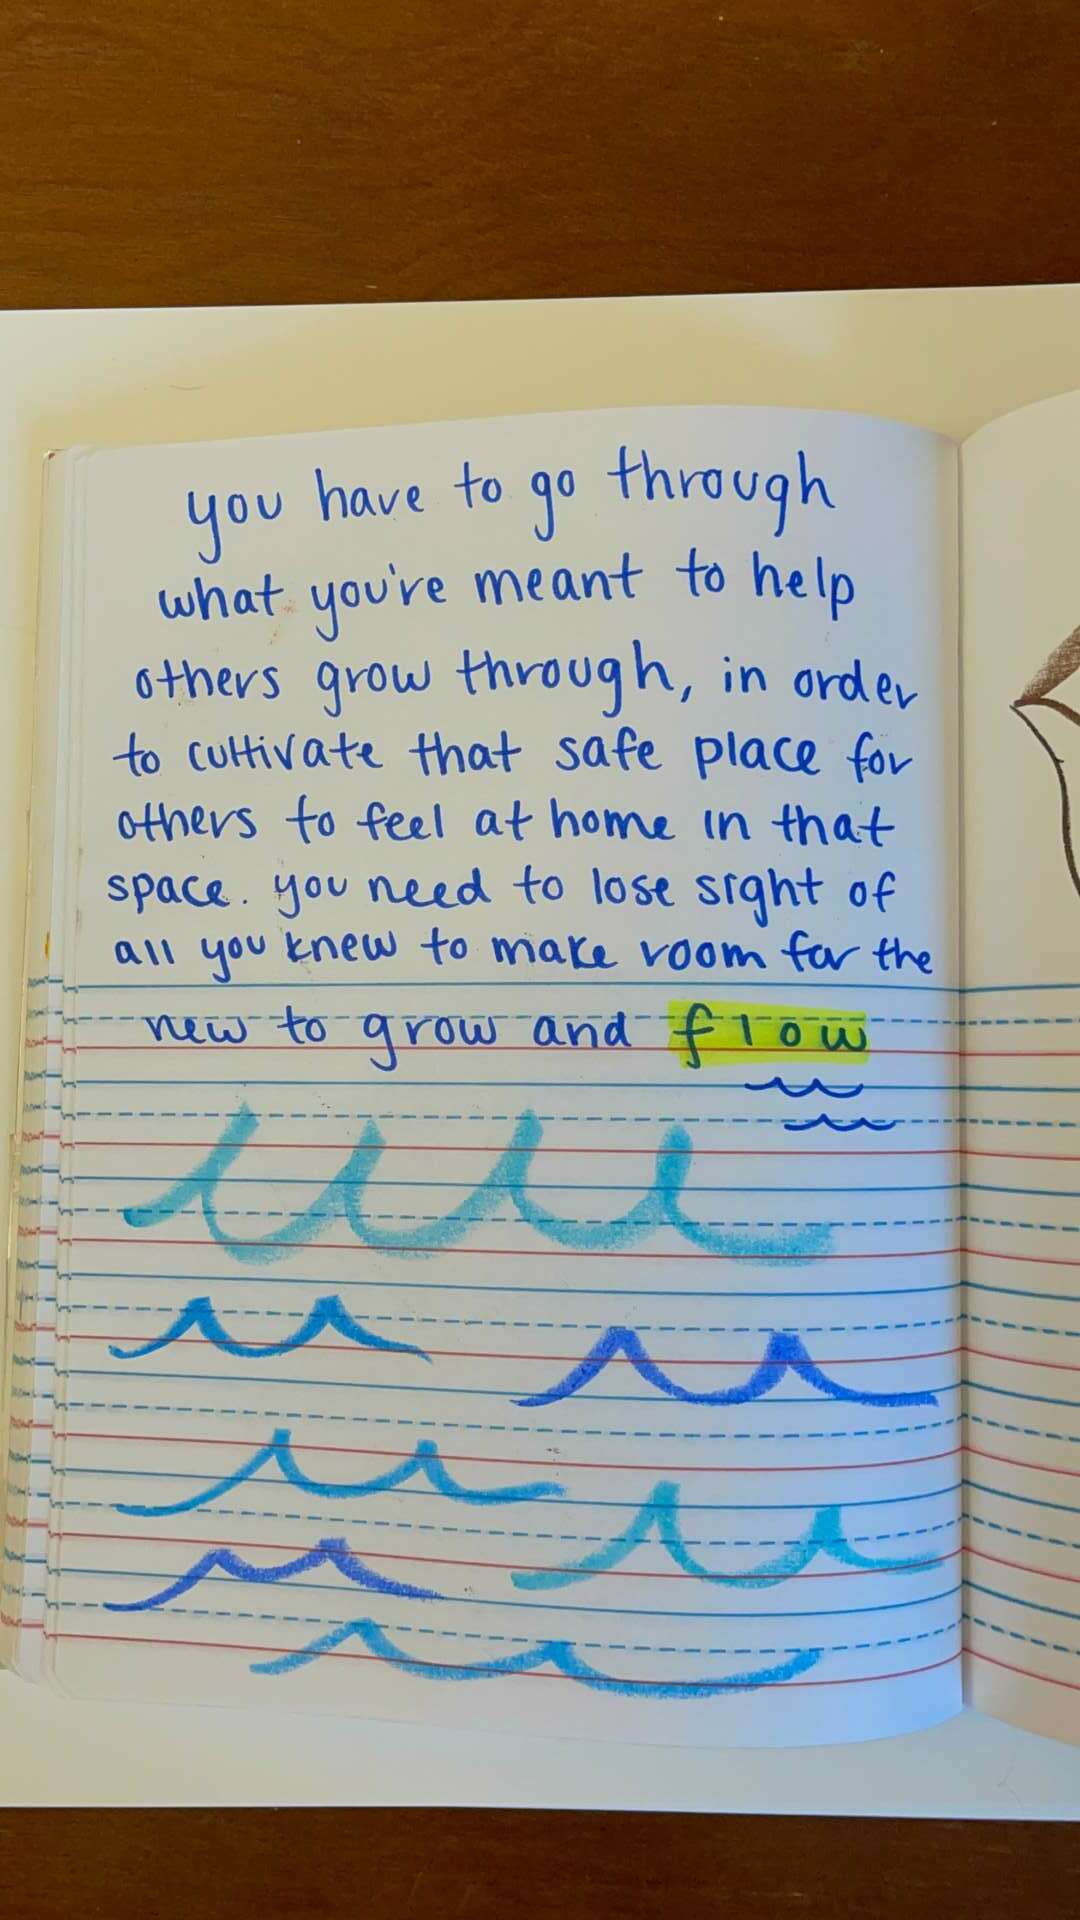 you have to go through
what you're meant to help
others grow through, in order
to cultivate that safe place for
others to feel at home in that
space. you need to lose sight of
all you knew to make room for the
new to grow and flow